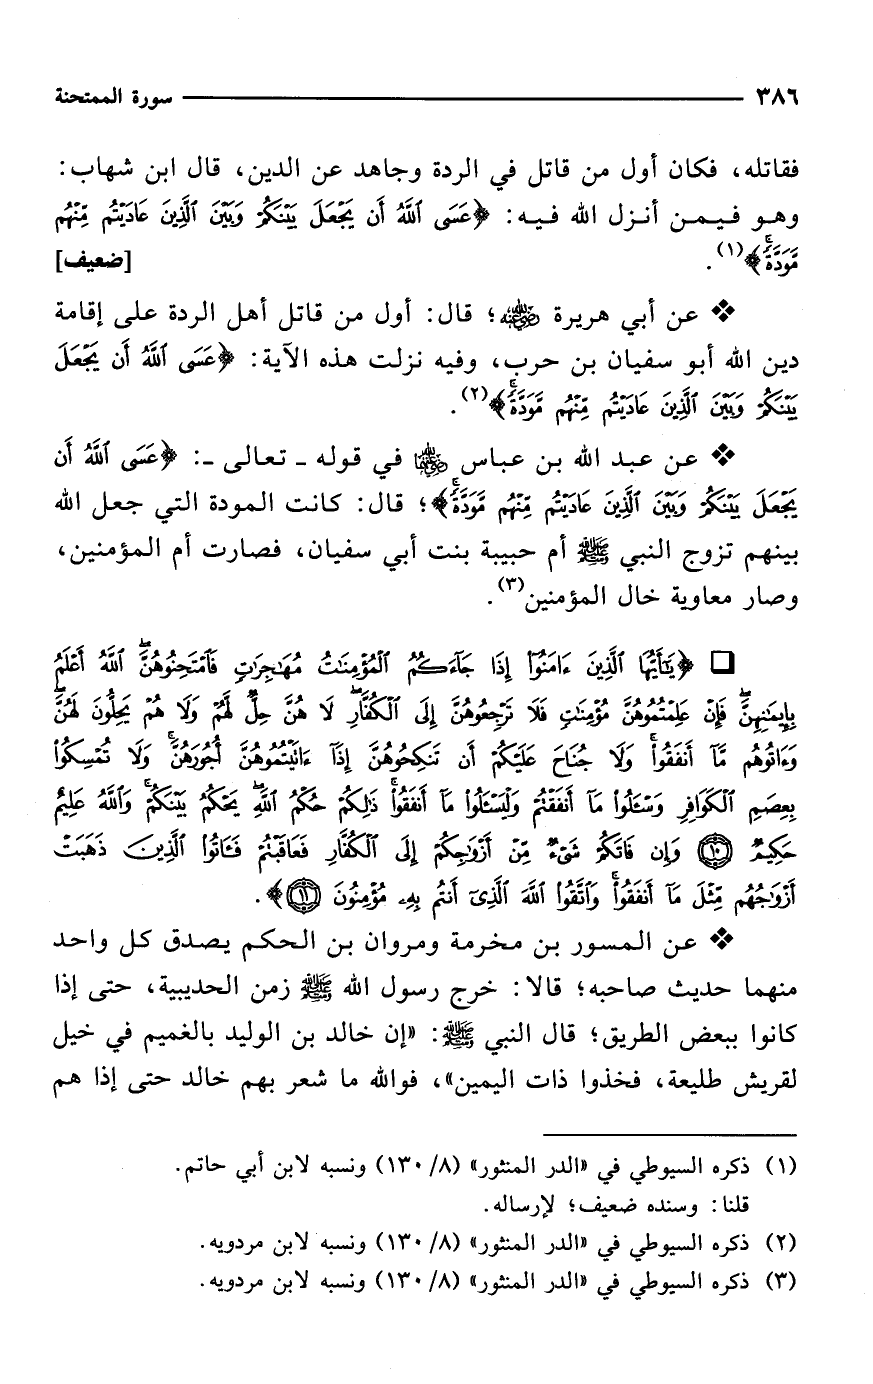 ٣٨٦ سورة الممتحنة
فقاتله، فكان أول من قاتل في الردة وجاهد عن الدين، قال ابن شهاب:
وهو فيمن أنزل الله فيه: ﴿عَسَى ٱللَّهُ أَن يَجْعَلَ بَيْنَكُمْ وَبَيْنَ ٱلَّذِينَ عَادَيْتُم مِّنْهُم
مَّوَدَّةً ۚ﴾(١). [ضعيف]
❖ عن أبي هريرة رضي الله عنه؛ قال: أول من قاتل أهل الردة على إقامة
دين الله أبو سفيان بن حرب، وفيه نزلت هذه الآية: ﴿عَسَى ٱللَّهُ أَن يَجْعَلَ
بَيْنَكُمْ وَبَيْنَ ٱلَّذِينَ عَادَيْتُم مِّنْهُم مَّوَدَّةً ۚ﴾(٢).
❖ عن عبد الله بن عباس رضي الله عنهما في قوله ـ تعالى ـ: ﴿عَسَى ٱللَّهُ أَن
يَجْعَلَ بَيْنَكُمْ وَبَيْنَ ٱلَّذِينَ عَادَيْتُم مِّنْهُم مَّوَدَّةً ۚ﴾؛ قال: كانت المودة التي جعل الله
بينهم تزوج النبي ﷺ أم حبيبة بنت أبي سفيان، فصارت أم المؤمنين،
وصار معاوية خال المؤمنين(٣).
❏ ﴿يَـٰٓأَيُّهَا ٱلَّذِينَ ءَامَنُوٓا۟ إِذَا جَآءَكُمُ ٱلْمُؤْمِنَـٰتُ مُهَـٰجِرَٰتٍ فَٱمْتَحِنُوهُنَّ ۖ ٱللَّهُ أَعْلَمُ
بِإِيمَـٰنِهِنَّ ۖ فَإِنْ عَلِمْتُمُوهُنَّ مُؤْمِنَـٰتٍ فَلَا تَرْجِعُوهُنَّ إِلَى ٱلْكُفَّارِ ۖ لَا هُنَّ حِلٌّ لَّهُمْ وَلَا هُمْ يَحِلُّونَ لَهُنَّ ۖ
وَءَاتُوهُم مَّآ أَنفَقُوا۟ ۚ وَلَا جُنَاحَ عَلَيْكُمْ أَن تَنكِحُوهُنَّ إِذَآ ءَاتَيْتُمُوهُنَّ أُجُورَهُنَّ ۚ وَلَا تُمْسِكُوا۟
بِعِصَمِ ٱلْكَوَافِرِ وَسْـَٔلُوا۟ مَآ أَنفَقْتُمْ وَلْيَسْـَٔلُوا۟ مَآ أَنفَقُوا۟ ۚ ذَٰلِكُمْ حُكْمُ ٱللَّهِ ۖ يَحْكُمُ بَيْنَكُمْ ۚ وَٱللَّهُ عَلِيمٌ
حَكِيمٌ ١٠ وَإِن فَاتَكُمْ شَىْءٌ مِّنْ أَزْوَٰجِكُمْ إِلَى ٱلْكُفَّارِ فَعَاقَبْتُمْ فَـَٔاتُوا۟ ٱلَّذِينَ ذَهَبَتْ
أَزْوَٰجُهُم مِّثْلَ مَآ أَنفَقُوا۟ ۚ وَٱتَّقُوا۟ ٱللَّهَ ٱلَّذِىٓ أَنتُم بِهِۦ مُؤْمِنُونَ ١١﴾.
❖ عن المسور بن مخرمة ومروان بن الحكم يصدق كل واحد
منهما حديث صاحبه؛ قالا: خرج رسول الله ﷺ زمن الحديبية، حتى إذا
كانوا ببعض الطريق؛ قال النبي ﷺ: «إن خالد بن الوليد بالغميم في خيل
لقريش طليعة، فخذوا ذات اليمين»، فوالله ما شعر بهم خالد حتى إذا هم
(١) ذكره السيوطي في «الدر المنثور» (٨/ ١٣٠) ونسبه لابن أبي حاتم.
قلنا: وسنده ضعيف؛ لإرساله.
(٢) ذكره السيوطي في «الدر المنثور» (٨/ ١٣٠) ونسبه لابن مردويه.
(٣) ذكره السيوطي في «الدر المنثور» (٨/ ١٣٠) ونسبه لابن مردويه.